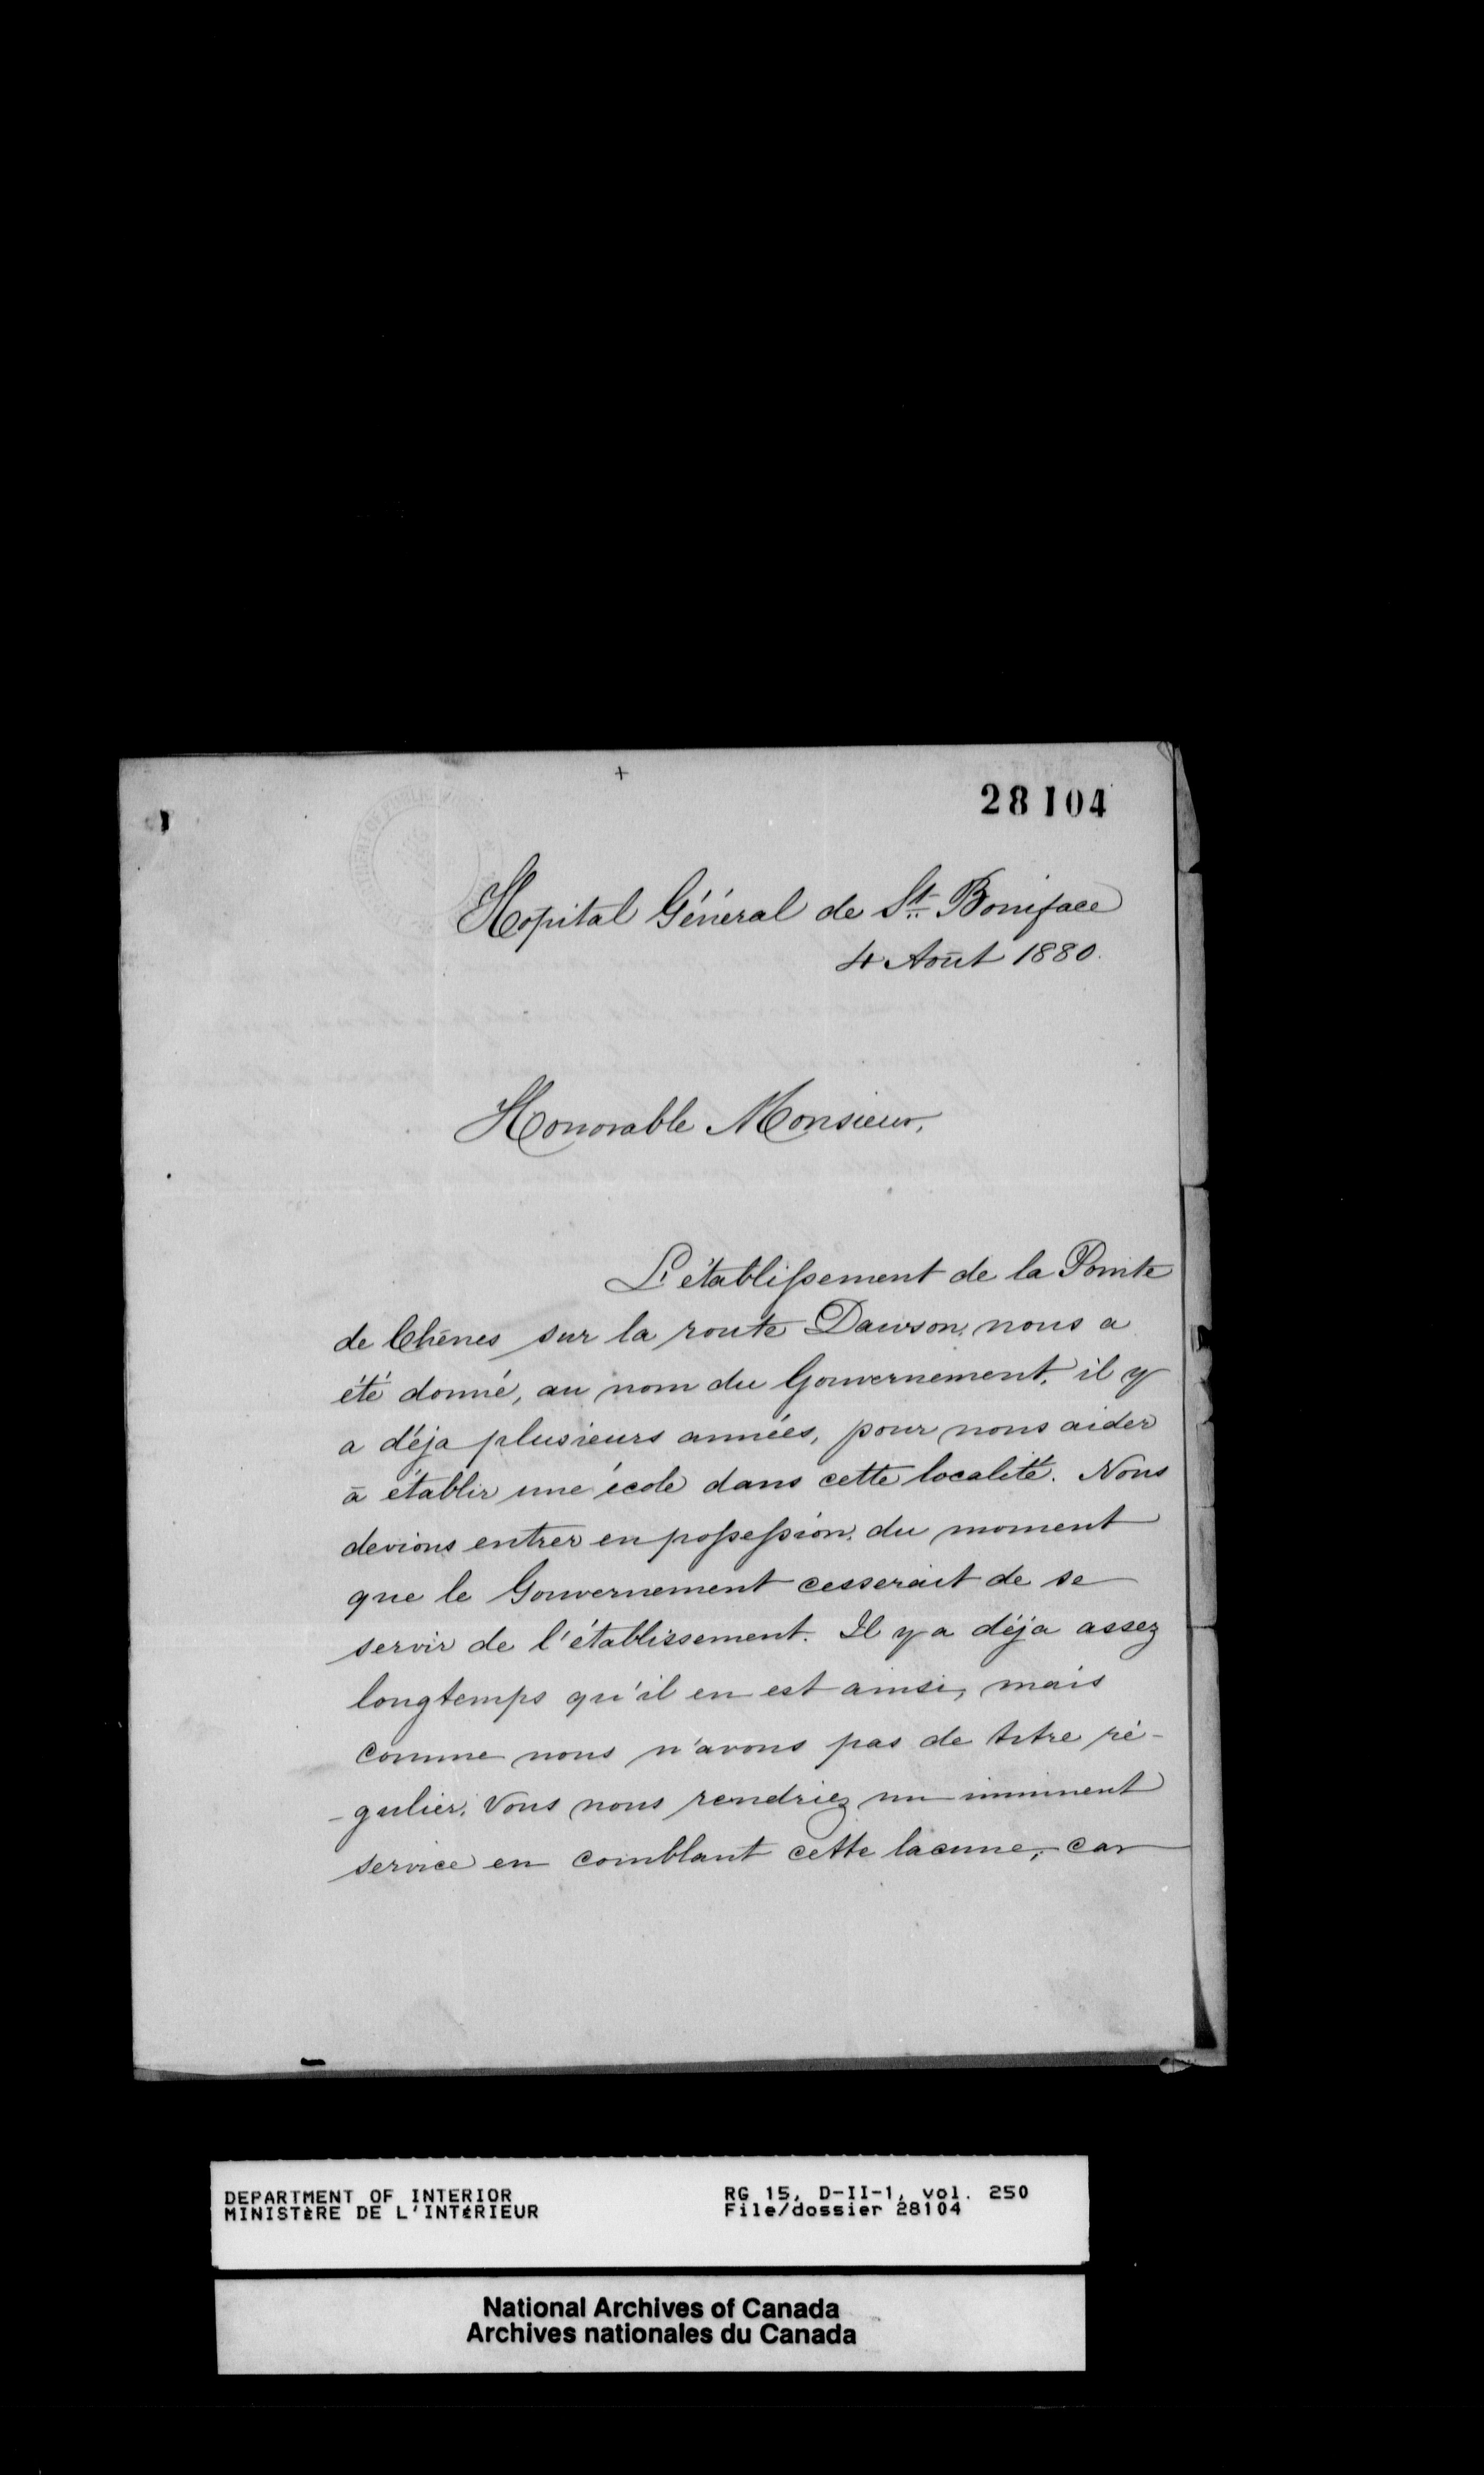 +
28104
Hôpital Général de St. Boniface
4 Août 1880.
Honorable Monsieur,
L'établissement de la Pointe
de Chênes sur la route Dawson, nous a
été donné, au nom du Gouvernement, il y
a déja plusieurs années, pour nous aider
à établir une école dans cette localité. Nous
devions entrer en possession, du moment
que le Gouvernement cesserait de se
servir de l'établissement. Il y a déja assez
longtemps qu'il en est ainsi, mais
comme nous n'avons pas de titre ré-
-gulier, vous nous rendriez un imminent
service en comblant cette lacune; car
DEPARTMENT OF INTERIOR RG 15, D-II-1, vol. 250
MINISTÈRE DE L'INTÉRIEUR File/dossier 28104
National Archives of Canada
Archives nationales du Canada